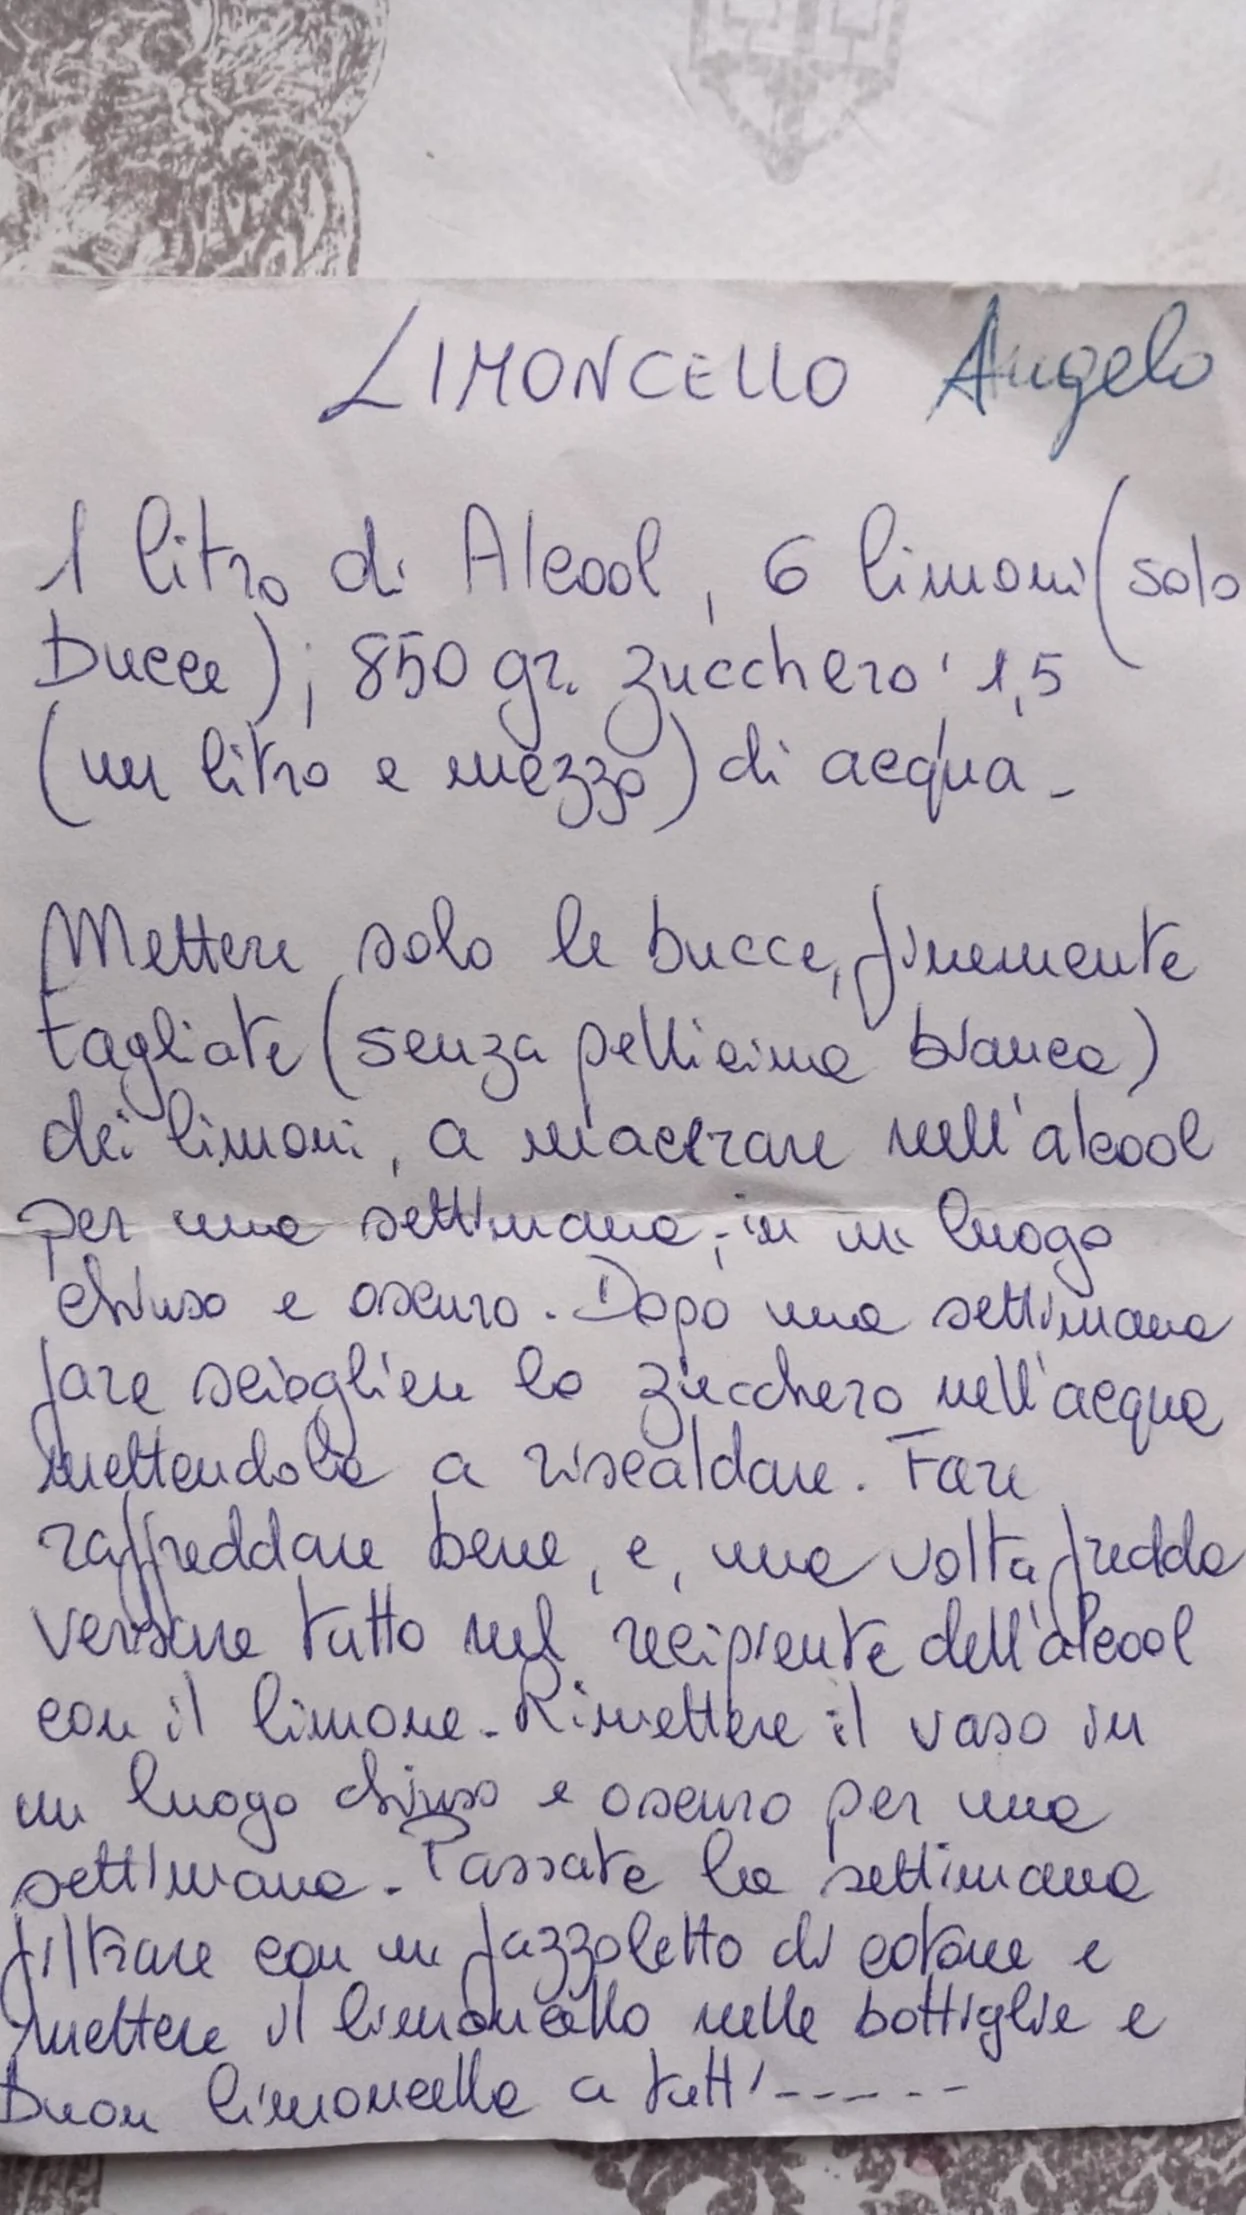 LIMONCELLO Angelo
1 litro di Alcool, 6 limoni (solo
Bucce); 850 gr. zucchero 1,5
(un litro e mezzo) di acqua -
Mettere solo le bucce, finemente
tagliate (senza pellicina bianca)
dei limoni, a macerare nell'alcool
per una settimana, in un luogo
chiuso e oscuro. Dopo una settimana
fare sciogliere lo zucchero nell'acqua
mettendola a riscaldare. Fare
raffreddare bene, e, una volta fredda
versare tutto nel recipiente dell'alcool
con il limone - Rimettere il vaso in
un luogo chiuso e oscuro per una
settimana - Passata la settimana
filtrare con un fazzoletto di cotone e
mettere il limoncello nelle bottiglie e
Buon limoncello a tutti -----